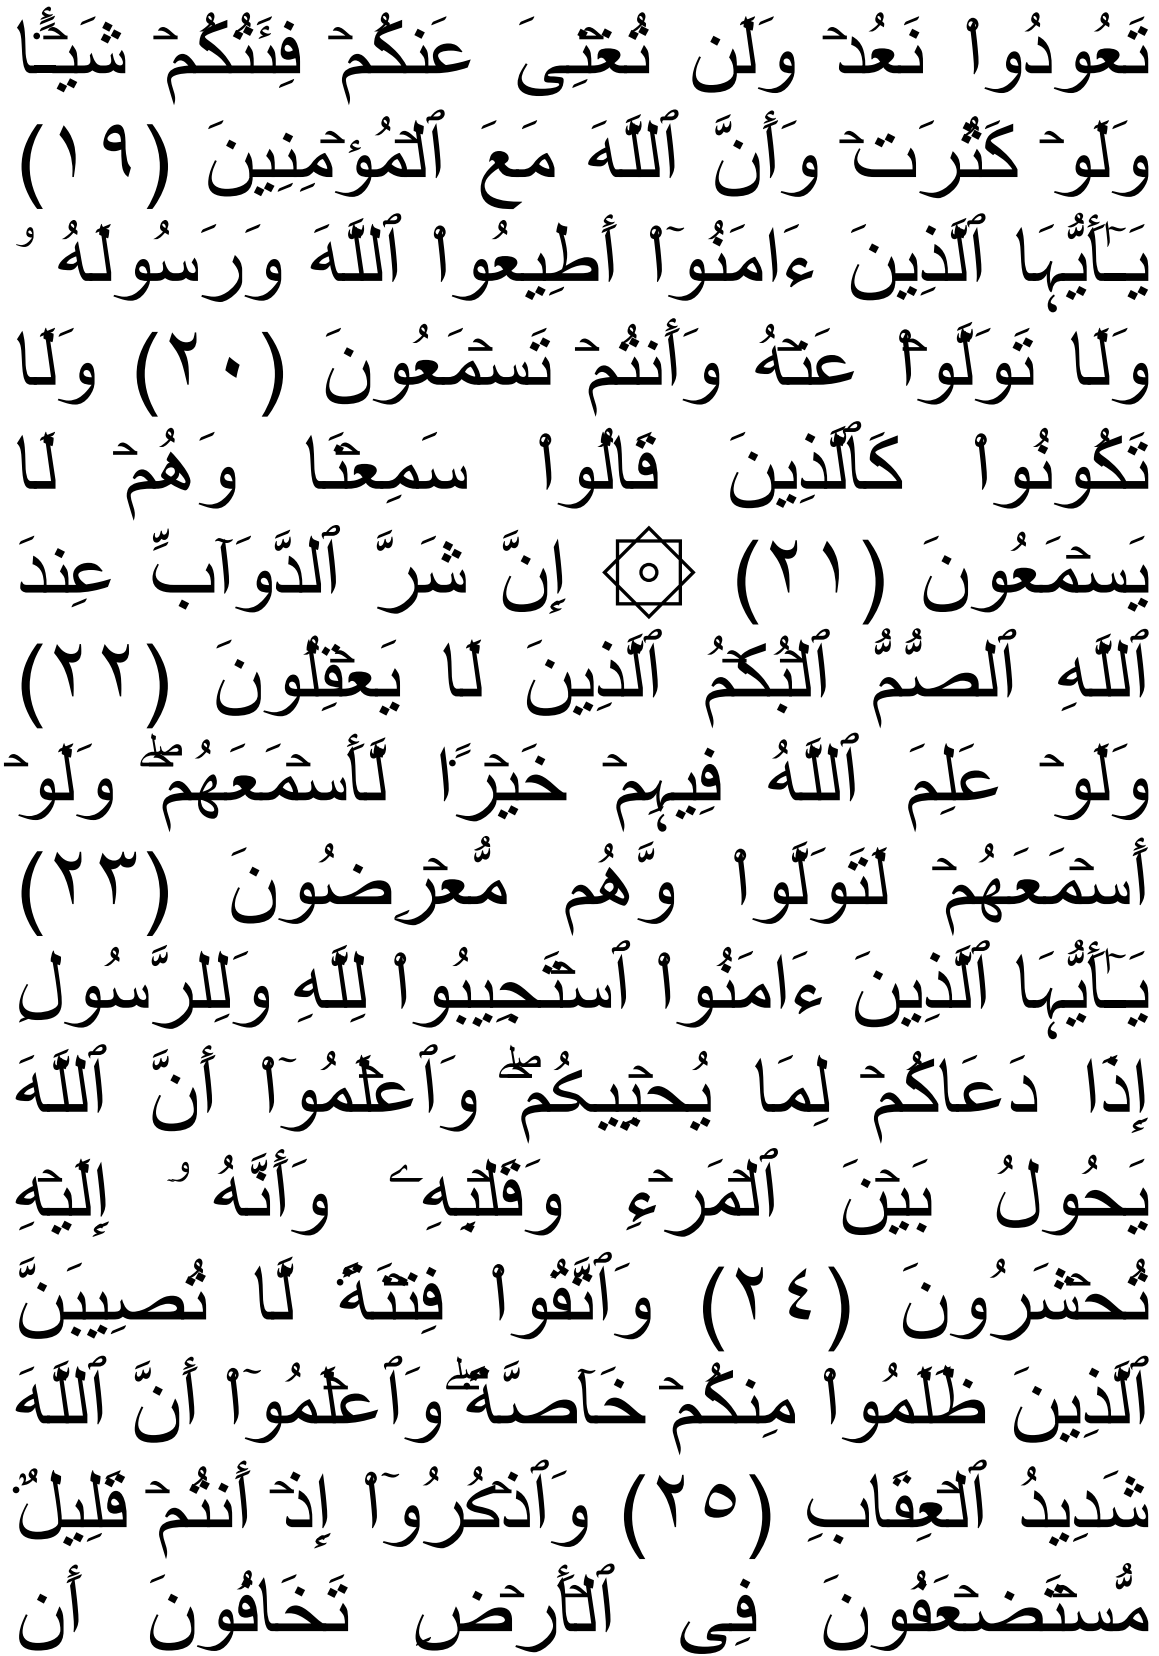 تَعُودُوا۟ نَعُدۡ وَلَن تُغۡنِىَ عَنكُمۡ فِئَتُكُمۡ شَيۡـًٔا
وَلَوۡ كَثُرَتۡ وَأَنَّ ٱللَّهَ مَعَ ٱلۡمُؤۡمِنِينَ (١٩)
يَـٰٓأَيُّہَا ٱلَّذِينَ ءَامَنُوٓا۟ أَطِيعُوا۟ ٱللَّهَ وَرَسُولَهُ ۥ
وَلَا تَوَلَّوۡا۟ عَنۡهُ وَأَنتُمۡ تَسۡمَعُونَ (٢٠) وَلَا
تَكُونُوا۟ كَٱلَّذِينَ قَالُوا۟ سَمِعۡنَا وَهُمۡ لَا
يَسۡمَعُونَ (٢١) ۞ إِنَّ شَرَّ ٱلدَّوَآبِّ عِندَ
ٱللَّهِ ٱلصُّمُّ ٱلۡبُكۡمُ ٱلَّذِينَ لَا يَعۡقِلُونَ (٢٢)
وَلَوۡ عَلِمَ ٱللَّهُ فِيہِمۡ خَيۡرً۬ا لَّأَسۡمَعَهُمۡ‌ۖ وَلَوۡ
أَسۡمَعَهُمۡ لَتَوَلَّوا۟ وَّهُم مُّعۡرِضُونَ (٢٣)
يَـٰٓأَيُّہَا ٱلَّذِينَ ءَامَنُوا۟ ٱسۡتَجِيبُوا۟ لِلَّهِ وَلِلرَّسُولِ
إِذَا دَعَاكُمۡ لِمَا يُحۡيِيكُمۡ‌ۖ وَٱعۡلَمُوٓا۟ أَنَّ ٱللَّهَ
يَحُولُ بَيۡنَ ٱلۡمَرۡءِ وَقَلۡبِهِۦ وَأَنَّهُ ۥۤ إِلَيۡهِ
تُحۡشَرُونَ (٢٤) وَٱتَّقُوا۟ فِتۡنَةً۬ لَّا تُصِيبَنَّ
ٱلَّذِينَ ظَلَمُوا۟ مِنكُمۡ خَآصَّةً۬‌ۖ وَٱعۡلَمُوٓا۟ أَنَّ ٱللَّهَ
شَدِيدُ ٱلۡعِقَابِ (٢٥) وَٱذۡكُرُوٓا۟ إِذۡ أَنتُمۡ قَلِيلٌ۬
مُّسۡتَضۡعَفُونَ فِى ٱلۡأَرۡضِ تَخَافُونَ أَن